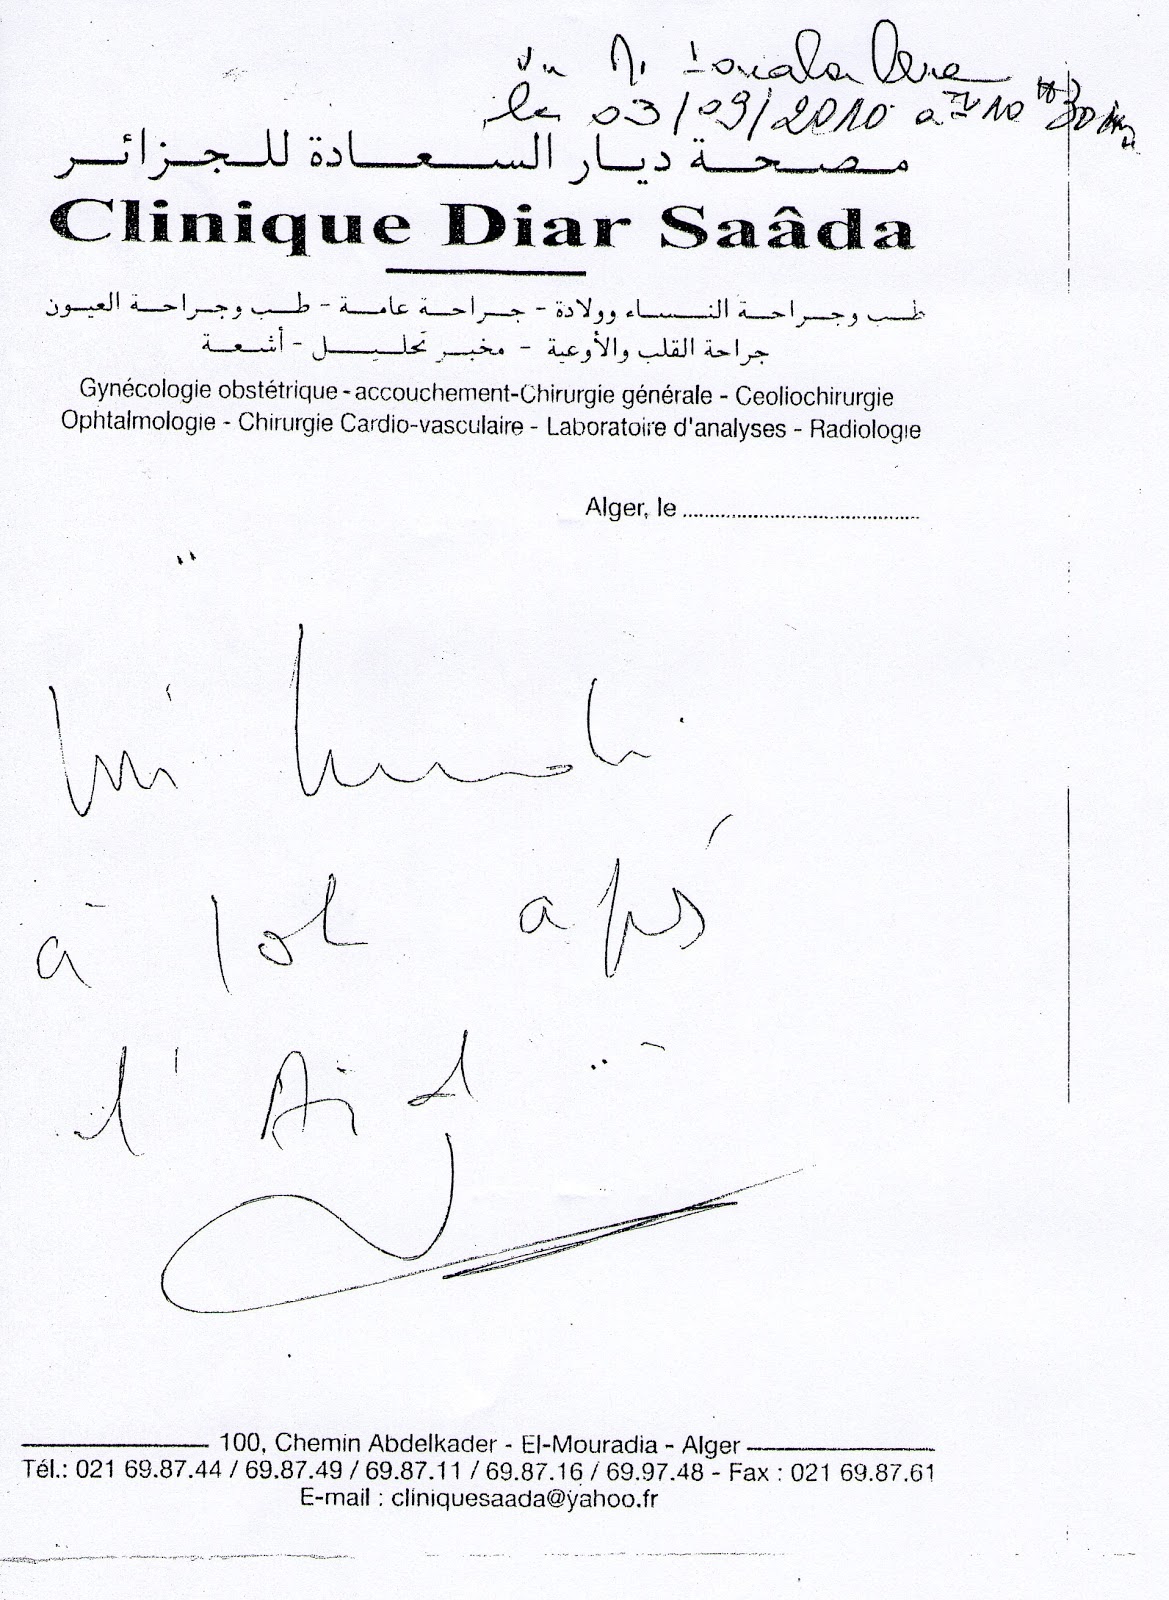 Vu M.
le 03/09/2010 a 10 H 30 mn
مصحة ديار السعادة للجزائر
Clinique Diar Saâda
طب وجراحة النساء وولادة - جراحة عامة - طب وجراحة العيون
جراحة القلب والأوعية - مخبر تحليل - أشعة
Gynécologie obstétrique - accouchement-Chirurgie générale - Ceoliochirurgie
Ophtalmologie - Chirurgie Cardio-vasculaire - Laboratoire d'analyses - Radiologie
Alger, le ..........................................
à 10h après
l'Aid
100, Chemin Abdelkader - El-Mouradia - Alger
Tél.: 021 69.87.44 / 69.87.49 / 69.87.11 / 69.87.16 / 69.97.48 - Fax : 021 69.87.61
E-mail : cliniquesaada@yahoo.fr